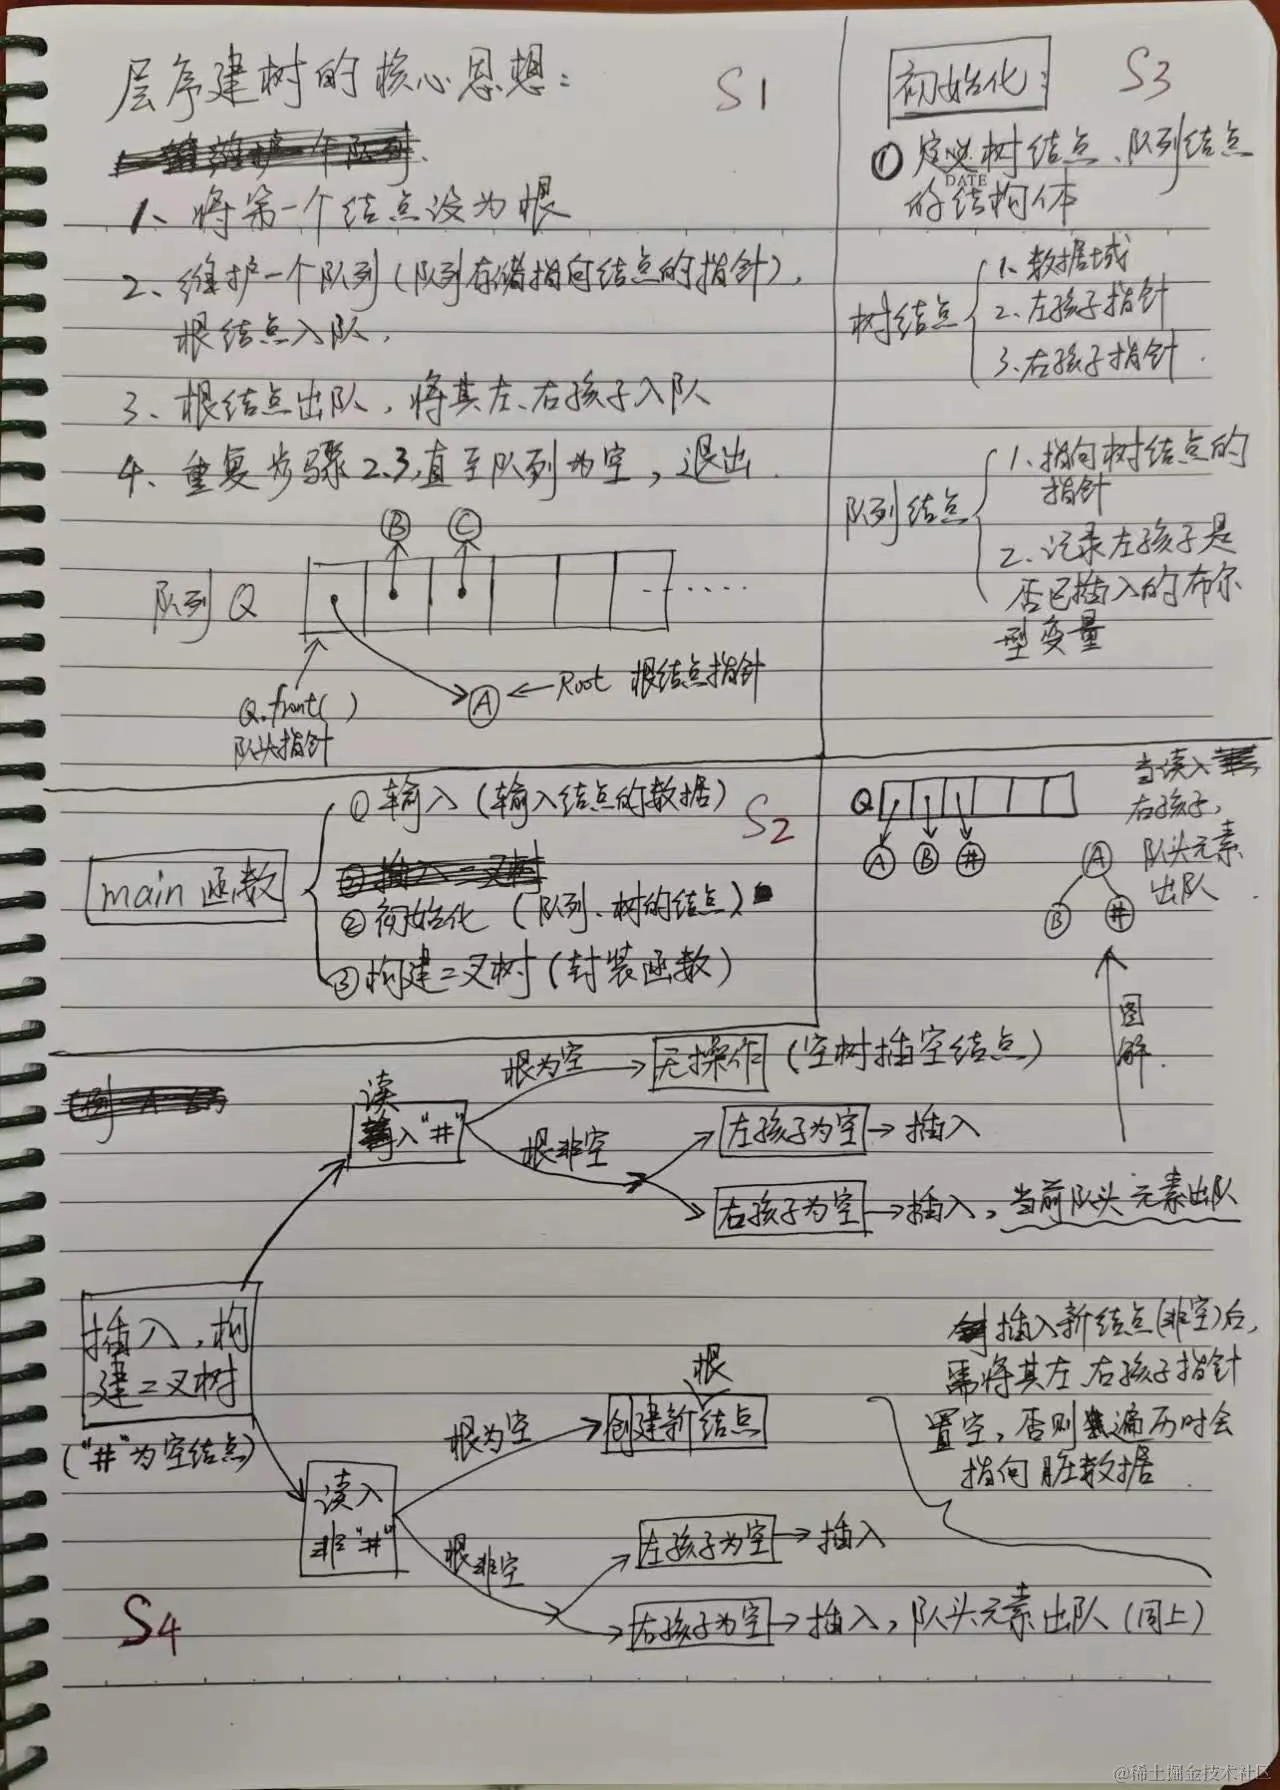 层序建树的核心思想：
S1
1、将第一个结点设为根
2、维护一个队列（队列存储指向结点的指针），
根结点入队，
3、根结点出队，将其左、右孩子入队
4、重复步骤2.3,直至队列为空，退出
B C
队列 Q
......
Q.front( )
队头指针
A
Root 根结点指针
初始化：
S3
① 定义树结点、队列结点
DATE
的结构体
树结点
1、数据域
2、左孩子指针
3、右孩子指针
队列结点
1、指向树结点的
指针
2、记录左孩子是
否已插入的布尔
型变量
S2
main 函数
① 输入（输入结点的数据）
② 初始化（队列、树的结点）
③ 构建二叉树（封装函数）
Q
A B #
A
B #
当读入
右孩子，
队头元素
出队
图
解
插入，构
建二叉树
（"#"为空结点）
读
入"#"
根为空
无操作（空树插空结点）
根非空
左孩子为空 插入
右孩子为空 插入，当前队头元素出队
读入
非"#"
根为空
根
创建新结点
根非空
左孩子为空 插入
右孩子为空 插入，队头元素出队（同上）
插入新结点(非空)后，
需将其左、右孩子指针
置空，否则遍历时会
指向脏数据
S4
@稀土掘金技术社区